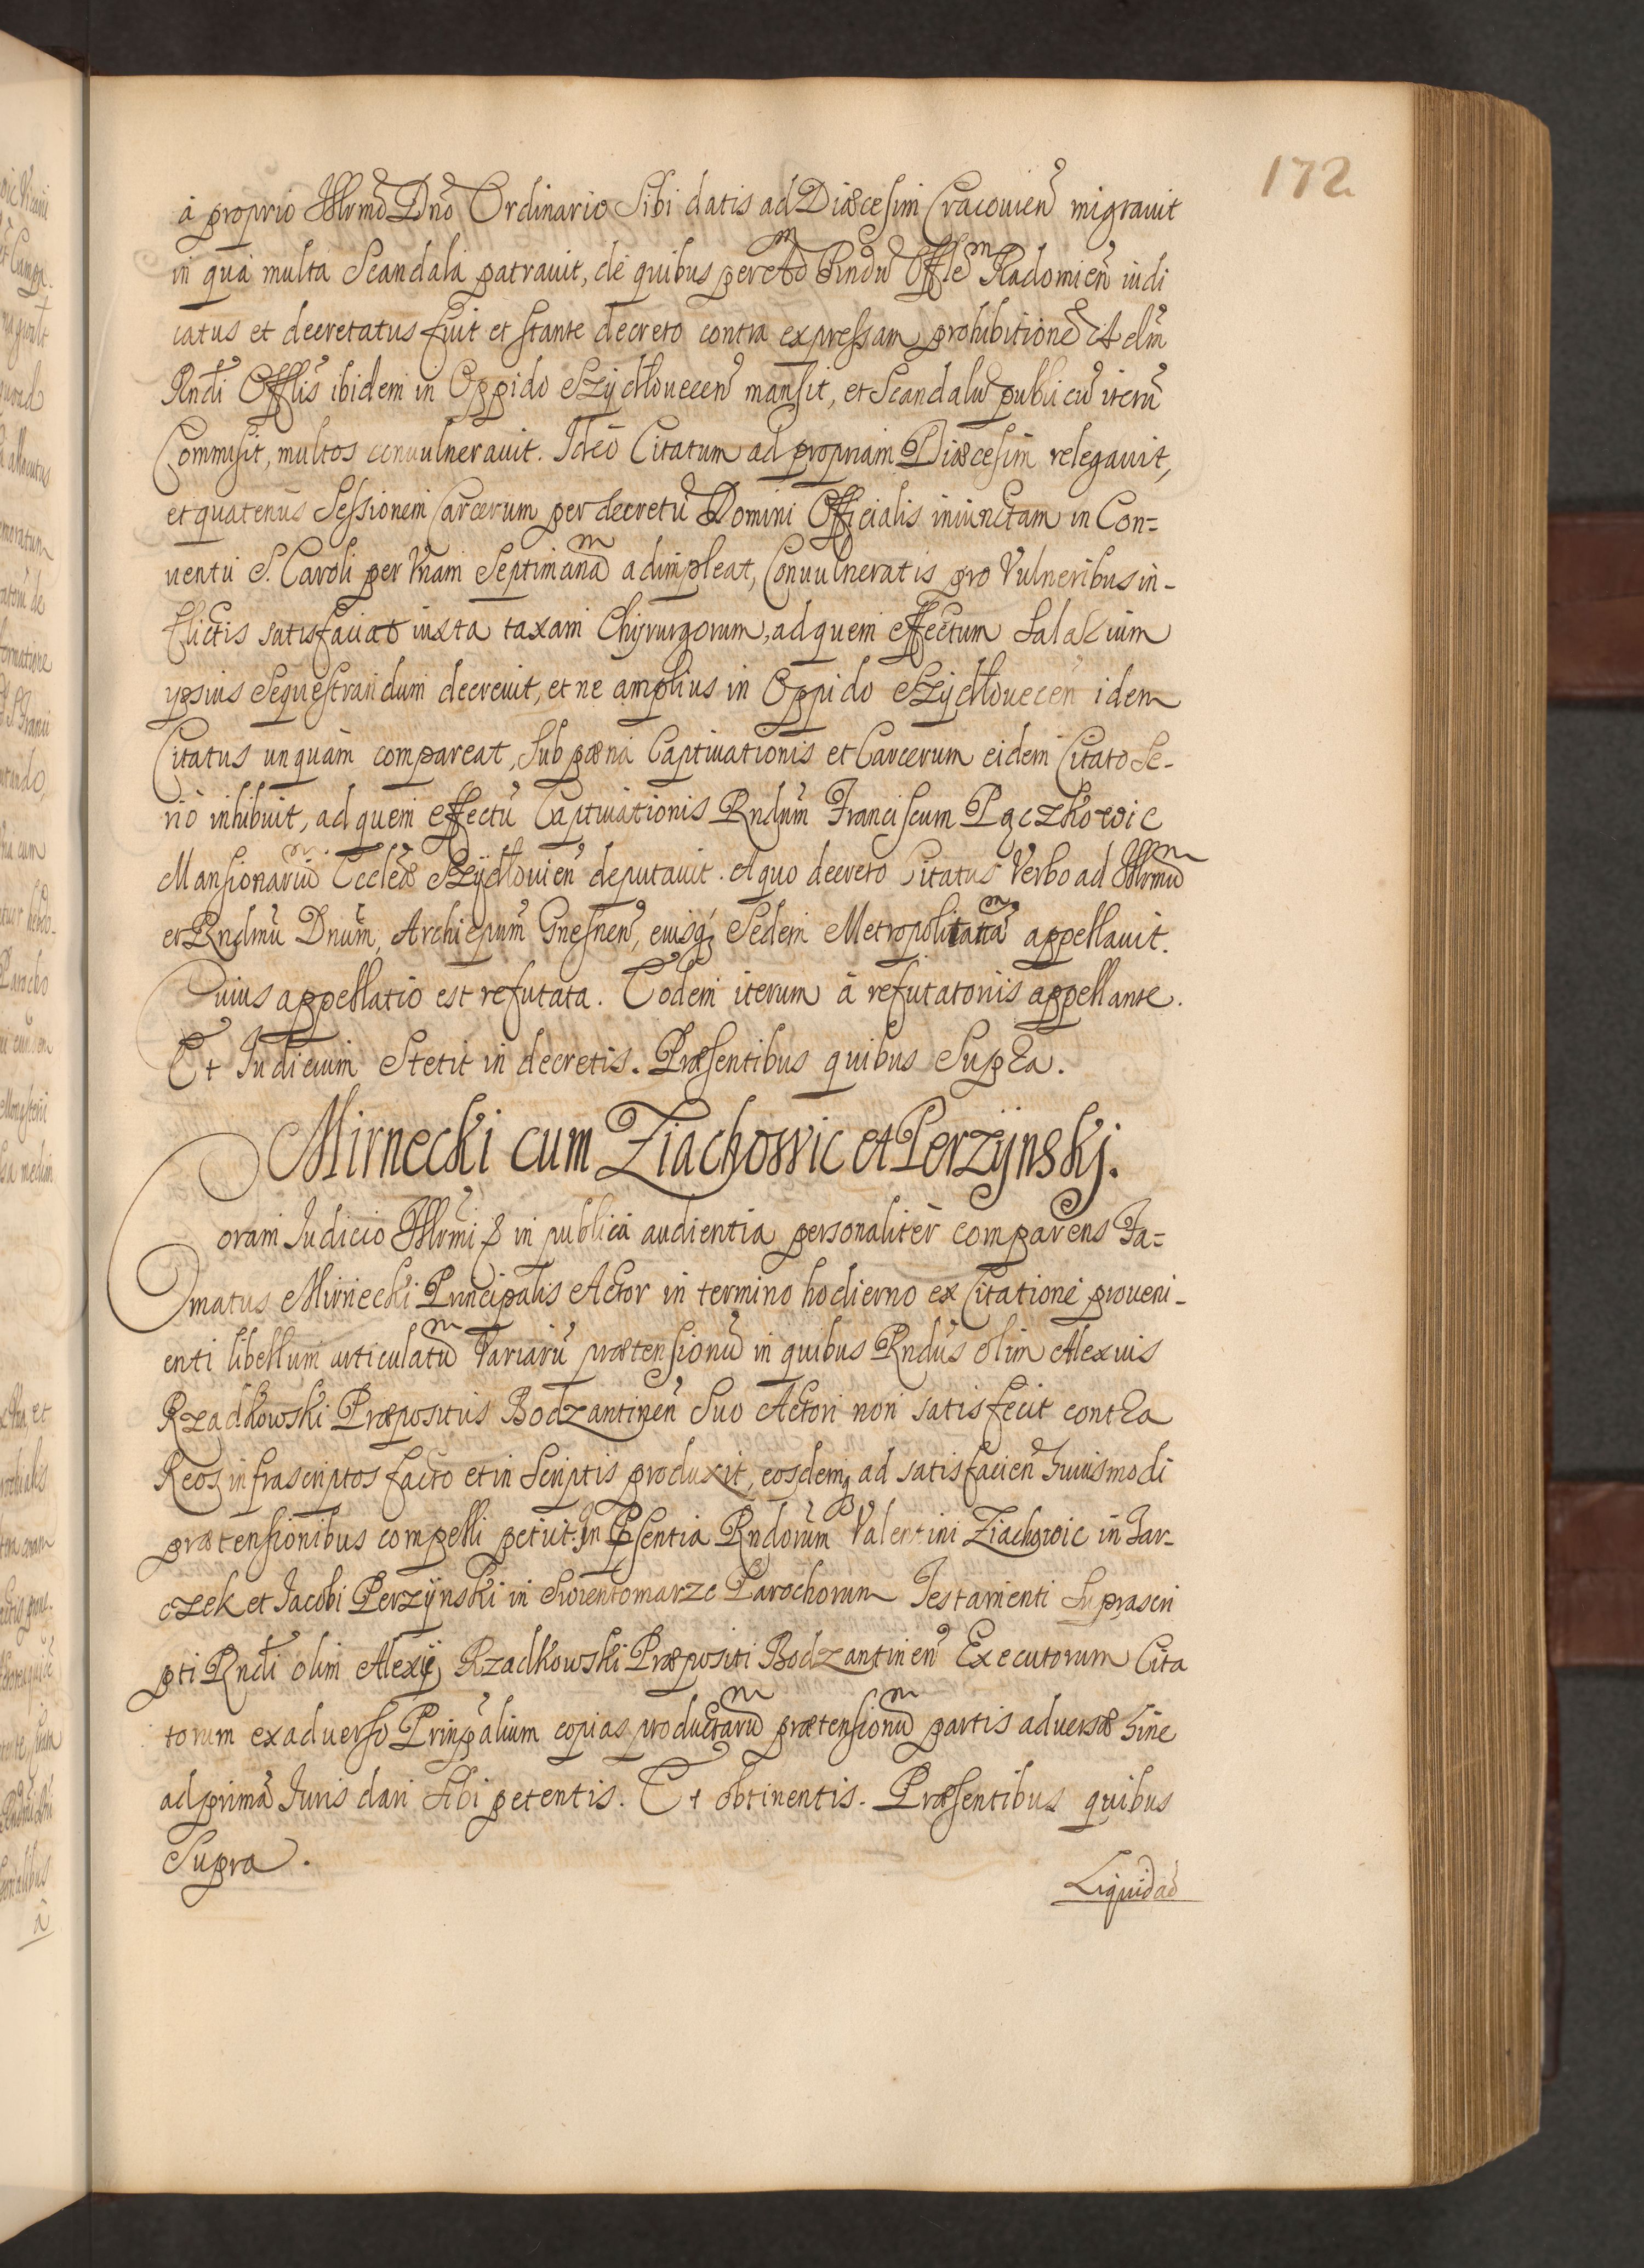 172
à proprio Illrmo Dno Ordinario Sibi datis ad Diæcesim Cracouien migrauit
in qua multa Scandala patrauit, de quibus per Rndu Offle Radomien iudi
catus et decretatus fuit et stante decreto contra expressam prohibitione Adm
Rndi Offlis ibidem in Oppido Szydłouecen mansit, et Scandalu publicu iteru
Commisit, multos conuulnerauit. Ideo Citatum ad propriam Diæcesim relegauit,
et quatenus Sessionem Carcerum per decretu Domini Officialis iniunctam in Con=
uentu S. Caroli per Vnam Septimana adimpleat, Conuulneratis pro Vulneribus in-
flictis satisfaciat iuxta taxam Chyrurgorum, ad quem effectum Salarium
ypsius Sequestrandum decreuit, et ne amplius in Oppido Szydłouecen idem
Citatus unquam compareat, Sub pæna Captiuationis et Carcerum eidem Citato Se-
rio inhibuit, ad quem effectu Captiuationis Rndum Franciscum Pączkowic
Mansionariu Eccleæ Szydłouien deputauit. A quo decreto Citatus Verbo ad Illrmu
et Rndmu Dnum Archiepum Gnesnen, eiusq Sedem Metropolitana appellauit.
Cuius appellatio est refutata. Eodem iterum à refutatoriis appellante.
Et Iudicium Stetit in decretis. Præsentibus quibus Supra.
Mirnecki cum Ziachowic et Perzynskj.
Coram Iudicio Illrmi & in publica audientia personaliter comparens Ia=
matus Mirnecki Principalis Actor in termino hodierno ex Citatione proueni-
enti libellum articulatu Variaru prætensionu in quibus Rndus olim Alexius
Rzadkowski Præpositus Bodzantinen Suo Actori non satisfecit contra
Reos infrascriptos facto et in Scriptis produxit, eosdemq ad satisfacien huiusmodi
prætensionibus compelli petiit. In Psentia Rndorum Valentini Ziachowic in Tar-
czek et Iacobi Perzynski in Swientomarze Parochorum Testamenti Suprascri
pti Rndi olim Alexij Rzadkowski Præpositi Bodzantinen Executorum Cita
torum ex aduerso Prinpalium copias productaru prætensionu partis aduersæ hinc
ad prima Iuris dari Sibi petentis. Et obtinentis. Præsentibus quibus
Supra.
Liquidao